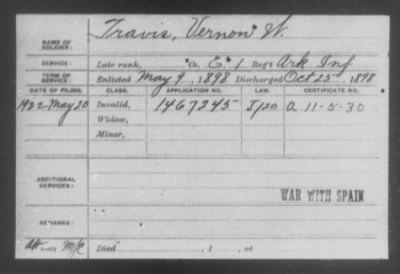 NAME OF SOLDIER: Travis, Vernon W.
SERVICE: Late rank, Co. E. 1 Reg't Ark Inf
TERM OF SERVICE: Enlisted May 9, 1898 Discharged Oct 25, 1898
DATE OF FILING. CLASS. APPLICATION NO. LAW. CERTIFICATE NO.
1922 May 20 Invalid, 1467245 A 11-5-30
Widow,
Minor,
ADDITIONAL SERVICES:
WAR WITH SPAIN
REMARKS:
Died , 1 , at